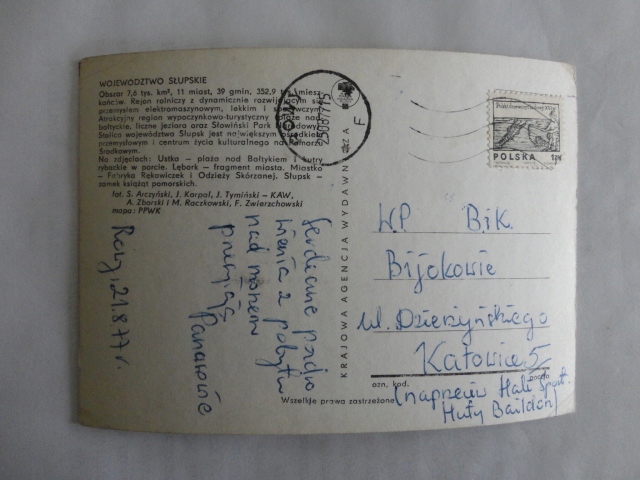 WOJEWÓDZTWO SŁUPSKIE
Obszar 7,6 tys. km², 11 miast, 39 gmin, 352,9 tys. miesz-
kańców. Rejon rolniczy z dynamicznie rozwijającym się
przemysłem elektromaszynowym, lekkim i spożywczym.
Atrakcyjny region wypoczynkowo-turystyczny – plaże nad-
bałtyckie, liczne jeziora oraz Słowiński Park Narodowy.
Stolica województwa Słupsk jest największym ośrodkiem
przemysłowym i centrum życia kulturalnego na Pomorzu
Środkowym.
Na zdjęciach: Ustka – plaża nad Bałtykiem i kutry
rybackie w porcie. Lębork – fragment miasta. Miastko
– Fabryka Rękawiczek i Odzieży Skórzanej. Słupsk –
zamek książąt pomorskich.
fot. S. Arczyński, J. Korpal, J. Tymiński – KAW,
A. Zborski i M. Raczkowski, F. Zwierzchowski
mapa: PPWK
21.8.77r.
Serdeczne pozdro
wienia z pobytu
nad morzem
przesyłają
KRAJOWA AGENCJA WYDAWNICZA
Wszelkie prawa zastrzeżone
POLSKA
WP. Bik.
Bijokowie
ul. Dzierżyńskiego
Katowice 5
ozn. kod. poczta
(naprzeciw Hali Sport.
Huty Baildon)